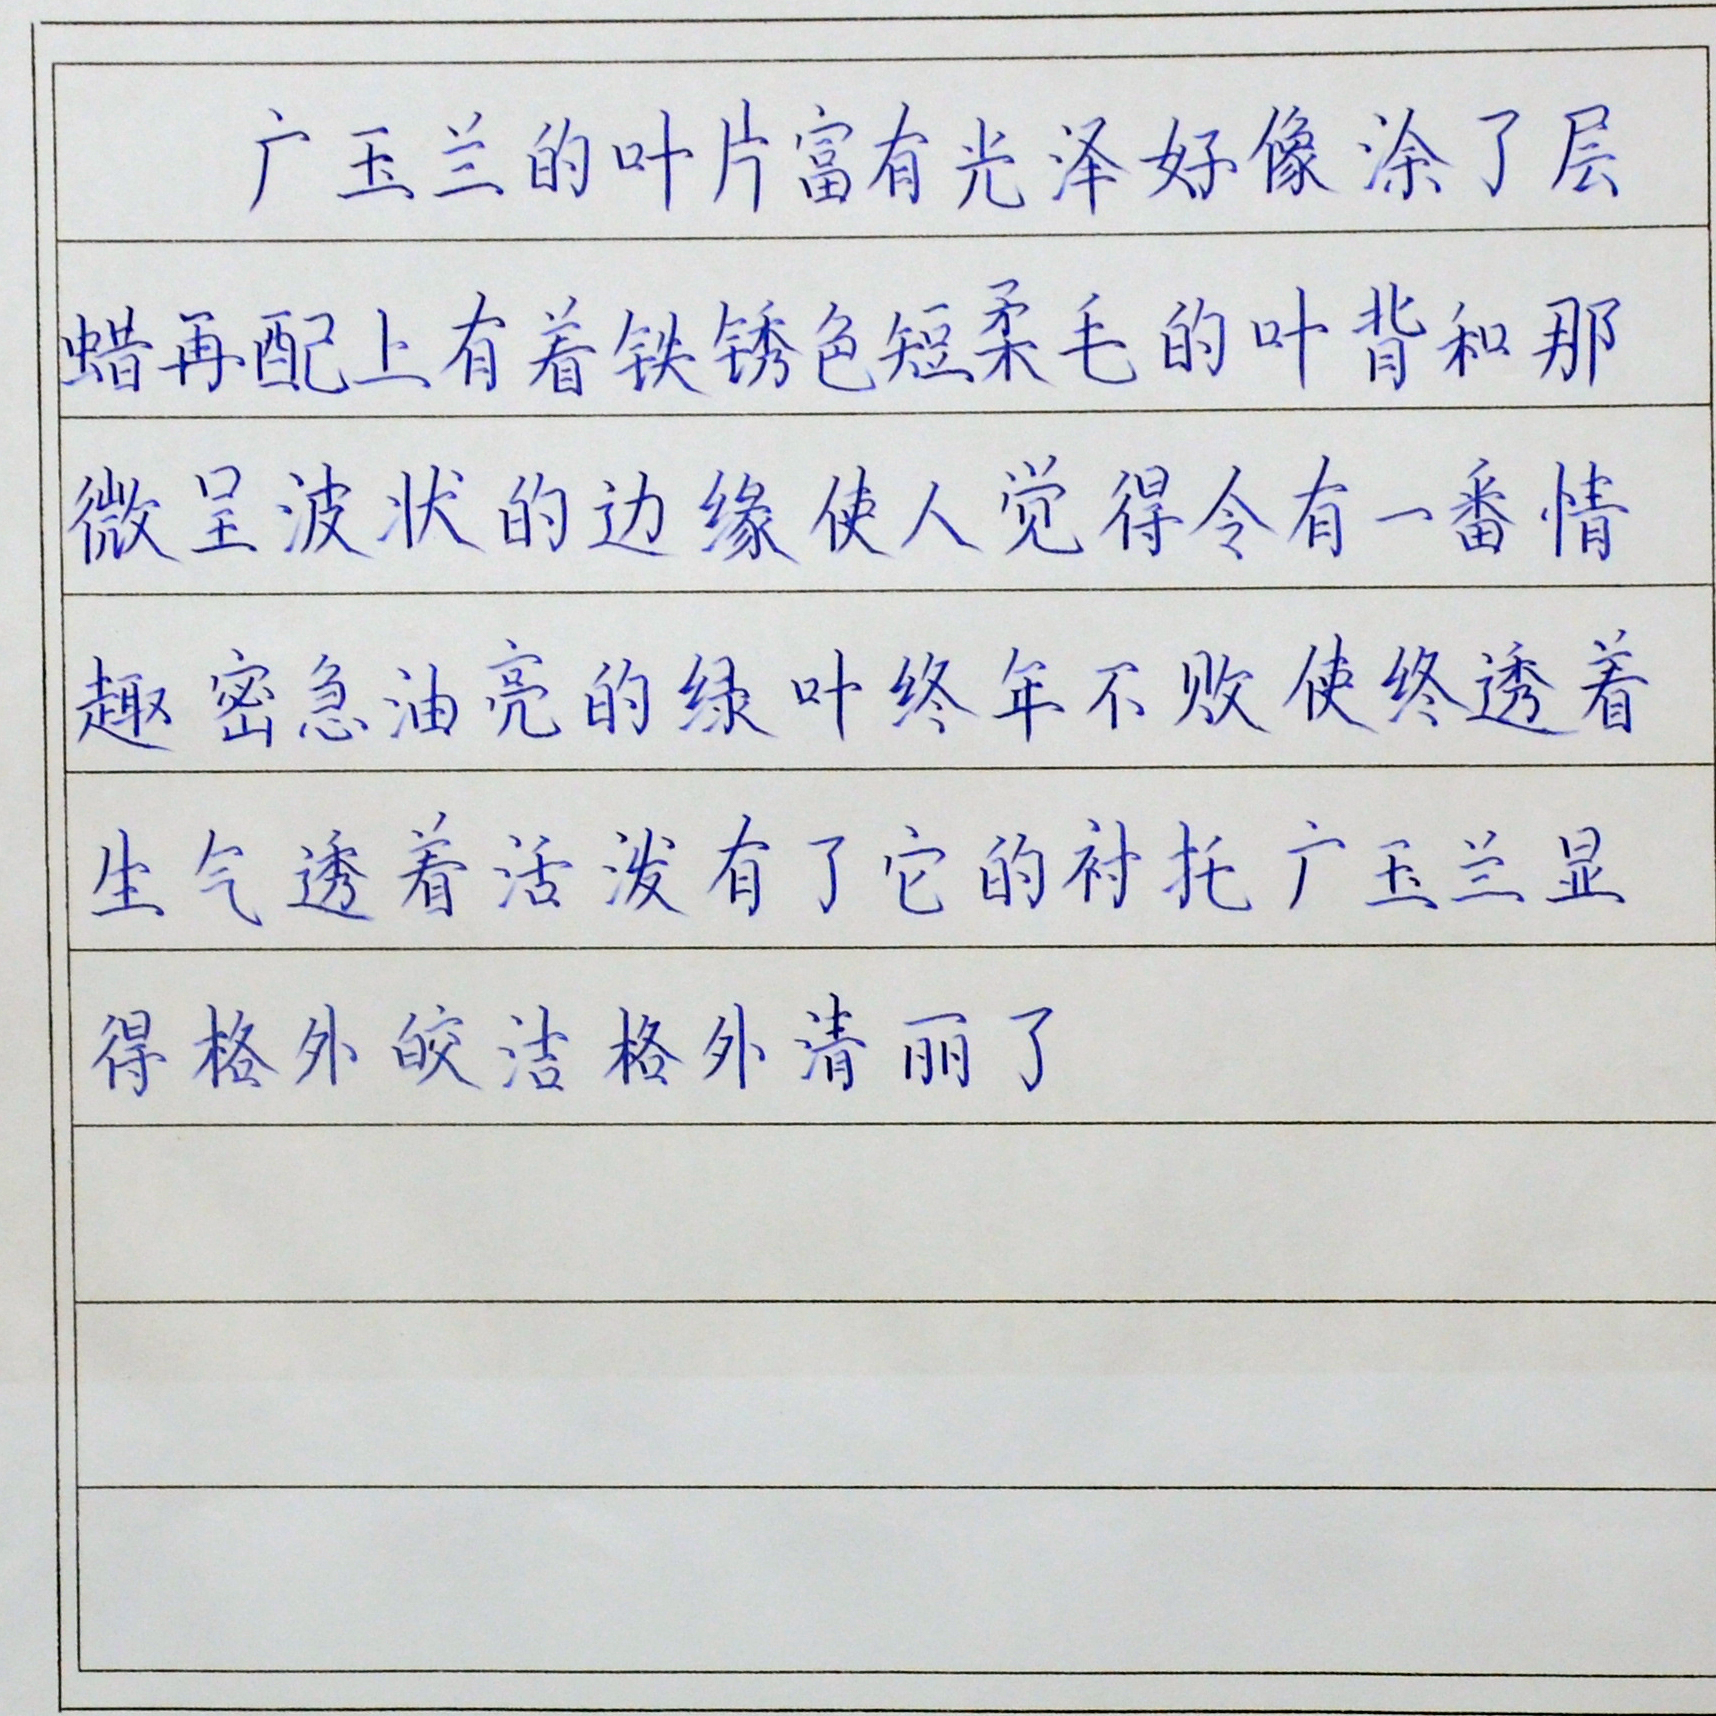 广玉兰的叶片富有光泽好像涂了层
蜡再配上有着铁锈色短柔毛的叶背和那
微呈波状的边缘使人觉得令有一番情
趣密急油亮的绿叶终年不败使终透着
生气透着活泼有了它的衬托广玉兰显
得格外皎洁格外清丽了